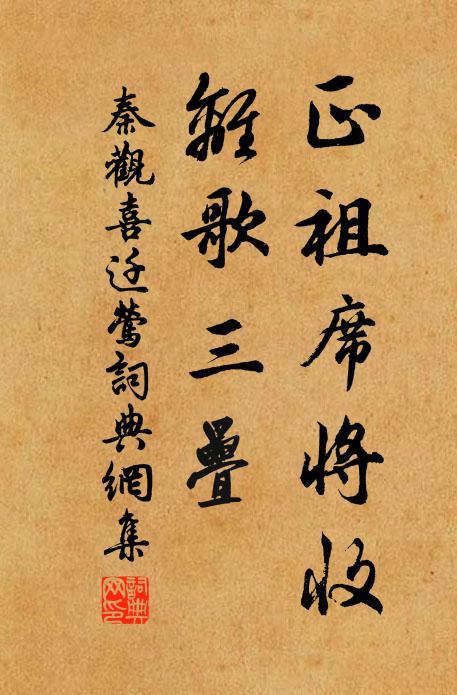 正祖席將收
離歌三疊
秦觀喜迁鶯詞典網集
詞典網印